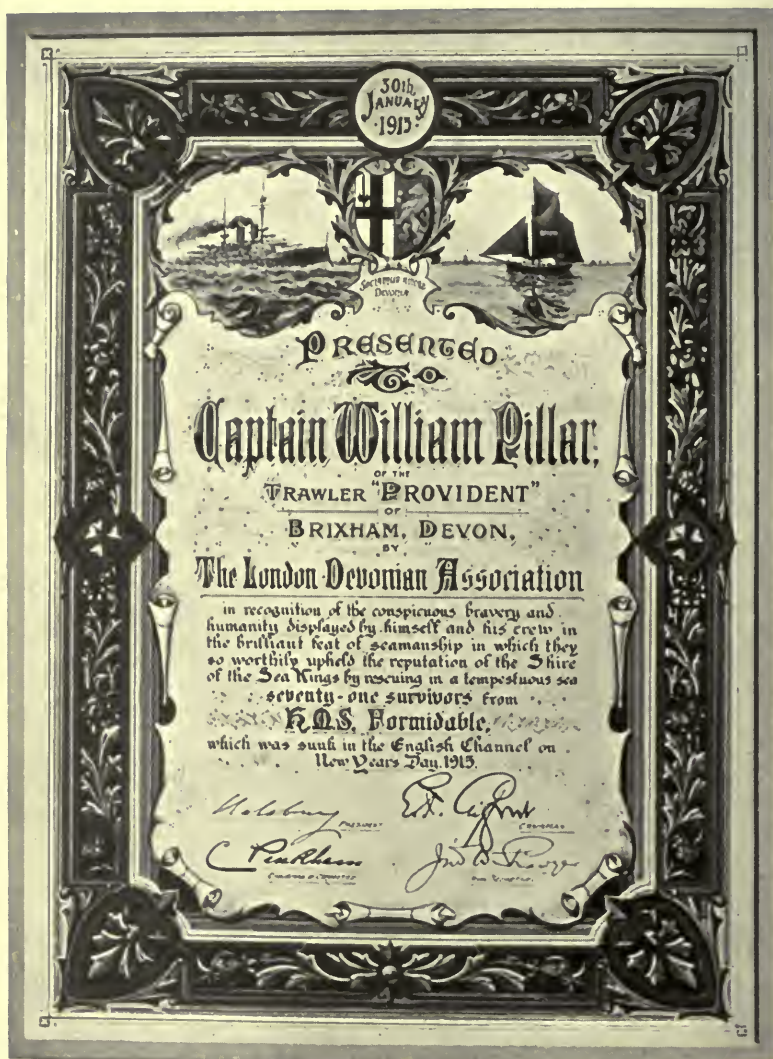 30th
JANUARY
1915
Sociamur amore
Devoniæ
PRESENTED
TO
Captain William Pillar,
OF THE
TRAWLER "PROVIDENT"
OF
BRIXHAM, DEVON,
BY
The London Devonian Association
in recognition of the conspicuous bravery and
humanity displayed by himself and his crew in
the brilliant feat of seamanship in which they
so worthily upheld the reputation of the Shire
of the Sea Kings by rescuing in a tempestuous sea
seventy-one survivors from
H.M.S. Formidable,
which was sunk in the English Channel on
New Years Day, 1915.
Halsbury
PRESIDENT
CHAIRMAN
C Pinkham
Jno W. Shawyer
HON. SECRETARY